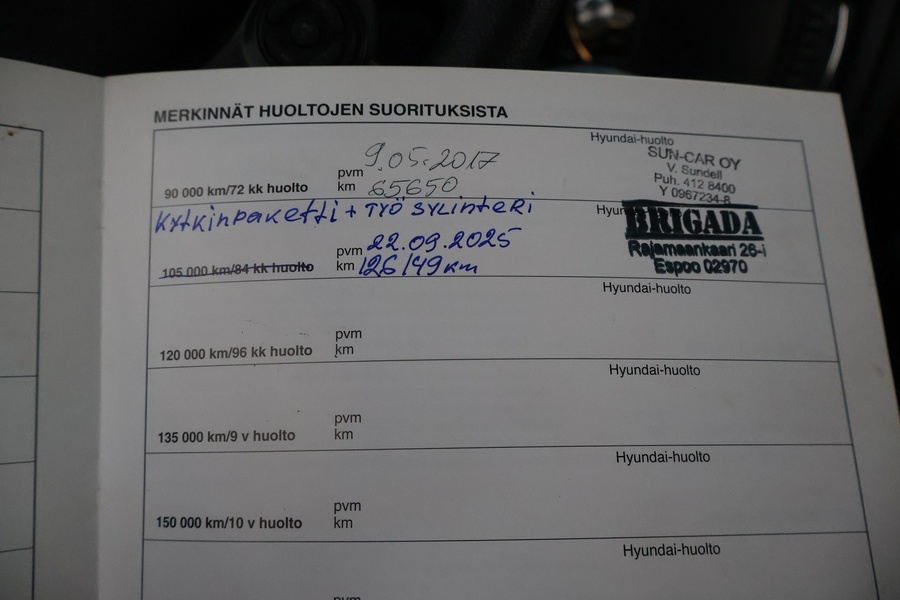 MERKINNÄT HUOLTOJEN SUORITUKSISTA
Hyundai-huolto
SUN-CAR OY
V. Sundell
Puh. 412 8400
Y 0967234-8
90 000 km/72 kk huolto
pvm 9.05.2017
km 65650
Kytkinpaketti + TYÖ SYLINTERI
BRIGADA
Rajamaankaari 26-i
Espoo 02970
105 000 km/84 kk huolto
pvm 22.09.2025
km 126149 km
Hyundai-huolto
120 000 km/96 kk huolto
pvm
km
Hyundai-huolto
135 000 km/9 v huolto
pvm
km
Hyundai-huolto
150 000 km/10 v huolto
pvm
km
Hyundai-huolto